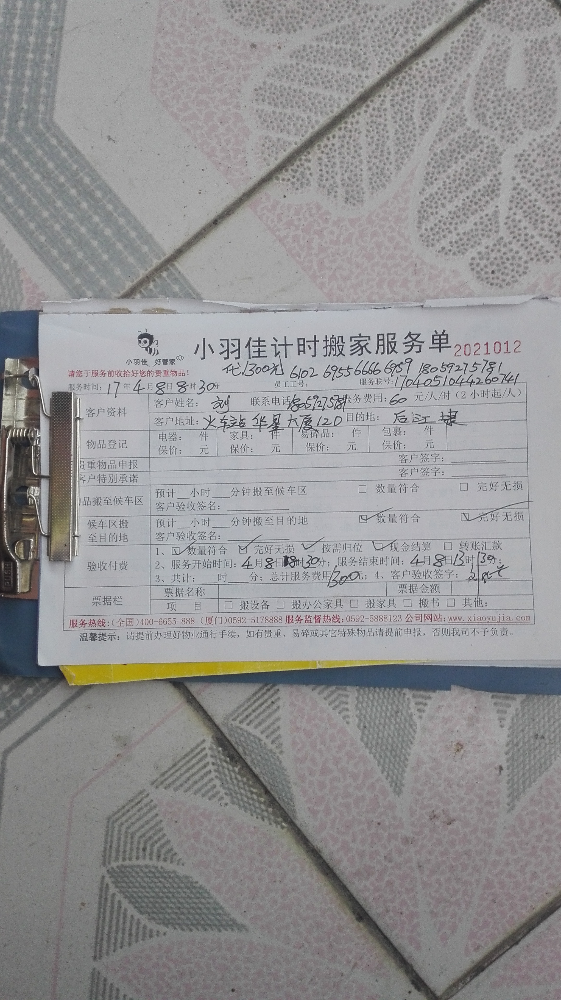 小羽佳 好管家
小羽佳计时搬家服务单 2021012
请您于服务前收拾好您的贵重物品!
1300 6102 6955 6666 6959 18059275781
服务时间: 17年4月8日8时30分 员工工号: 服务联号: 1704051044260741
客户资料 客户姓名: 刘 联系电话: 18059275781 服务费用: 60 元/人/时 (2小时起/人)
客户地址: 火车站华星大厦12D 目的地: 后江埭
物品登记 电器: 件 家具: 件 易碎品: 件 包裹: 件
保价: 元 保价: 元 保价: 元 保价: 元
贵重物品申报 客户签字:
客户特别承诺 客户签字:
物品搬至候车区 预计 小时 分钟搬至候车区 □ 数量符合 □ 完好无损
客户验收签名:
候车区搬至目的地 预计 小时 分钟搬至目的地 ☑ 数量符合 ☑ 完好无损
客户验收签名:
验收付费 1、☑ 数量符合 ☑ 完好无损 ☑ 按需归位 ☑ 现金结算 □ 转账汇款
2、服务开始时间: 4月8日8时30分; 服务结束时间: 4月8日13时30分;
3、共计: 时 分; 总计服务费用 1300元; 4、客户验收签字:
票据栏 票据名称 票据金额
项 目 □ 搬设备 □ 搬办公家具 □ 搬家具 □ 搬书 □ 其他:
服务热线:(全国)400-6655-888 (厦门)0592-5178888 服务监督热线:0592-5888123 公司网站:www.xiaoyujia.com
温馨提示: 请提前办理好物业通行手续, 如有贵重、易碎或其它特殊物品请提前申报, 否则我司不予负责。